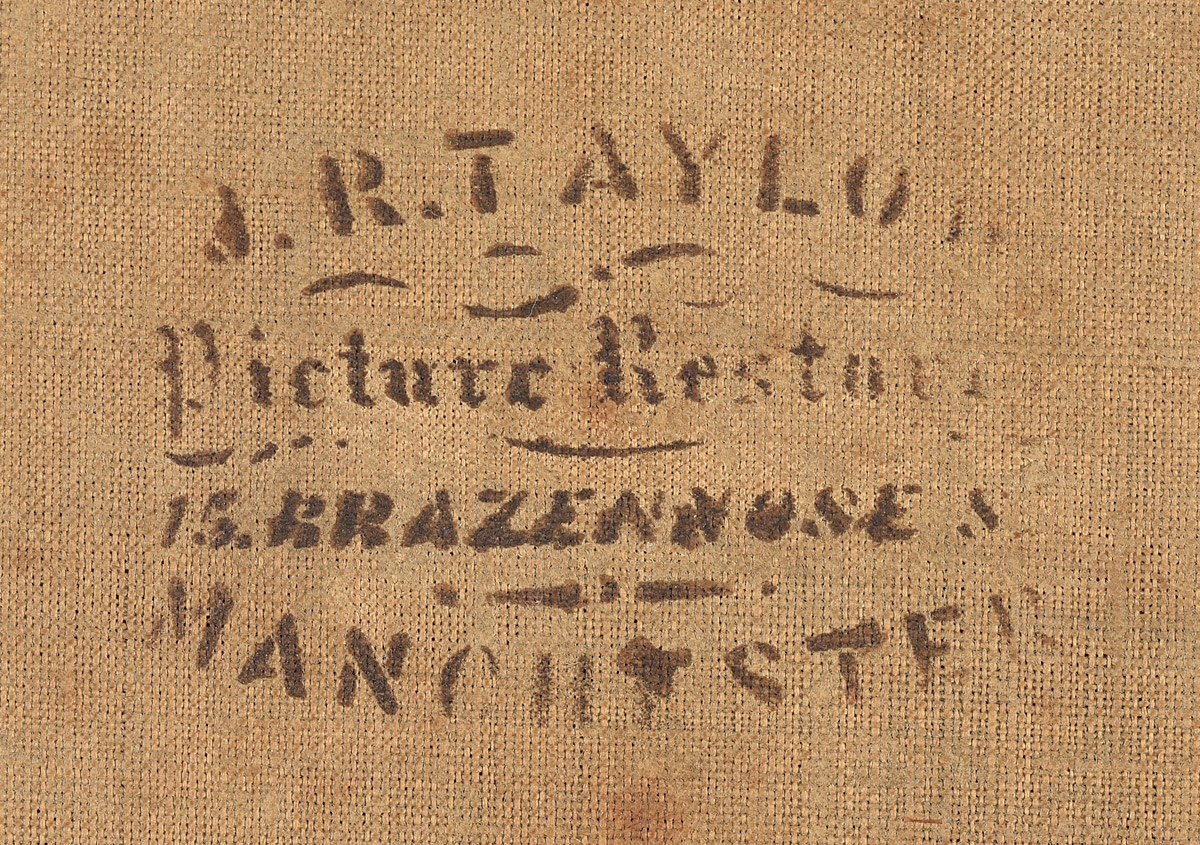 J. R. TAYLOR
Picture Restorer
15. BRAZENNOSE S
MANCHESTER